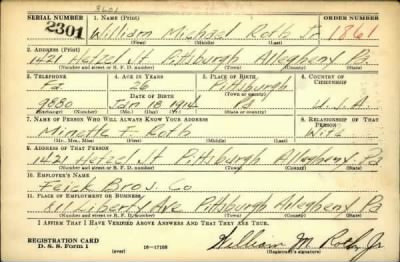 SERIAL NUMBER 1. NAME (Print) ORDER NUMBER
2301 William Michael Roth Jr. 1861
(First) (Middle) (Last)
2. ADDRESS (Print)
1421 Hetzel St Pittsburgh Allegheny Pa
(Number and street or R. F. D. number) (Town) (County) (State)
3. TELEPHONE 4. AGE IN YEARS 5. PLACE OF BIRTH 6. COUNTRY OF CITIZENSHIP
Fa 26 Pittsburgh
DATE OF BIRTH (Town or county)
9880 Jan 18 1914 Pa U.S.A.
(Exchange) (Number) (Mo.) (Day) (Yr.) (State or country)
7. NAME OF PERSON WHO WILL ALWAYS KNOW YOUR ADDRESS 8. RELATIONSHIP OF THAT PERSON
Minette F. Roth Wife
(Mr., Mrs., Miss) (First) (Middle) (Last)
9. ADDRESS OF THAT PERSON
1421 Hetzel St Pittsburgh Allegheny Pa
(Number and street or R. F. D. number) (Town) (County) (State)
10. EMPLOYER'S NAME
Feick Bros. Co
11. PLACE OF EMPLOYMENT OR BUSINESS
Liberty Ave Pittsburgh Allegheny Pa
(Number and street or R. F. D. number) (Town) (County) (State)
I AFFIRM THAT I HAVE VERIFIED ABOVE ANSWERS AND THAT THEY ARE TRUE.
REGISTRATION CARD William M Roth Jr
D. S. S. Form 1 (over) 16—17105 (Registrant's signature)